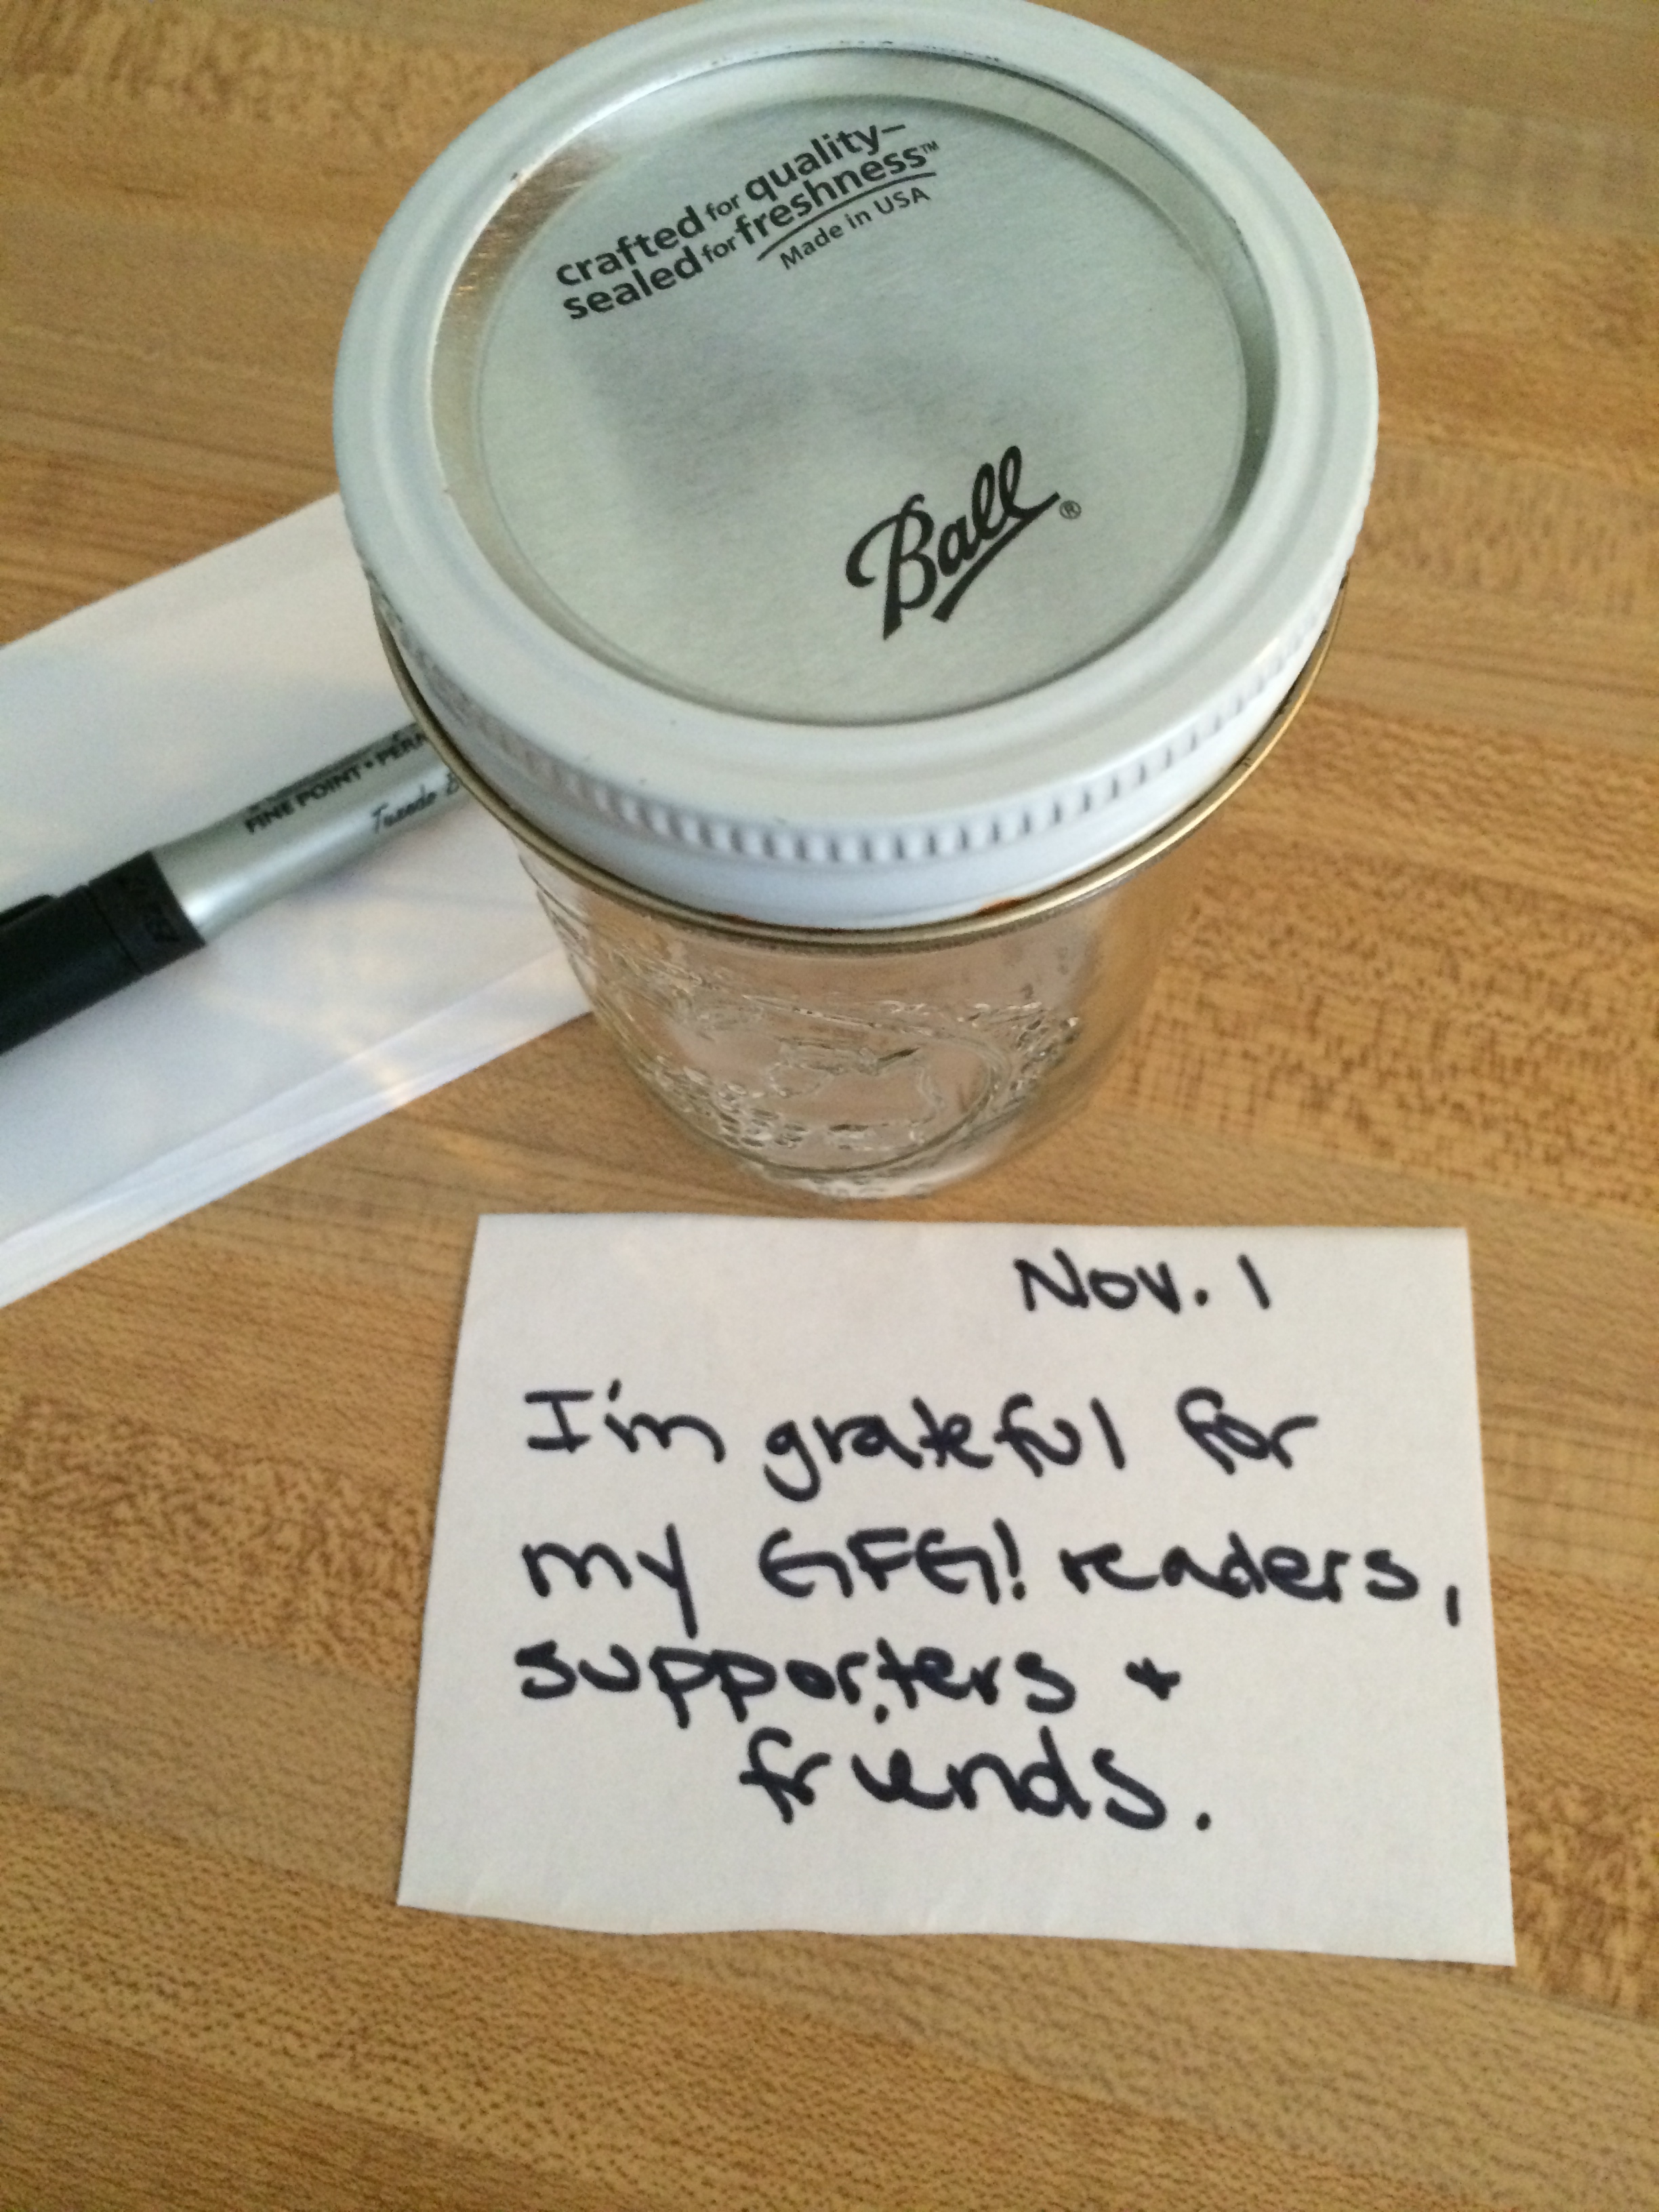 crafted for quality–
sealed for freshness™
Made in USA
Ball®
FINE POINT • PERM
Nov. 1
I'm grateful for
my GFG! readers,
supporters +
friends.